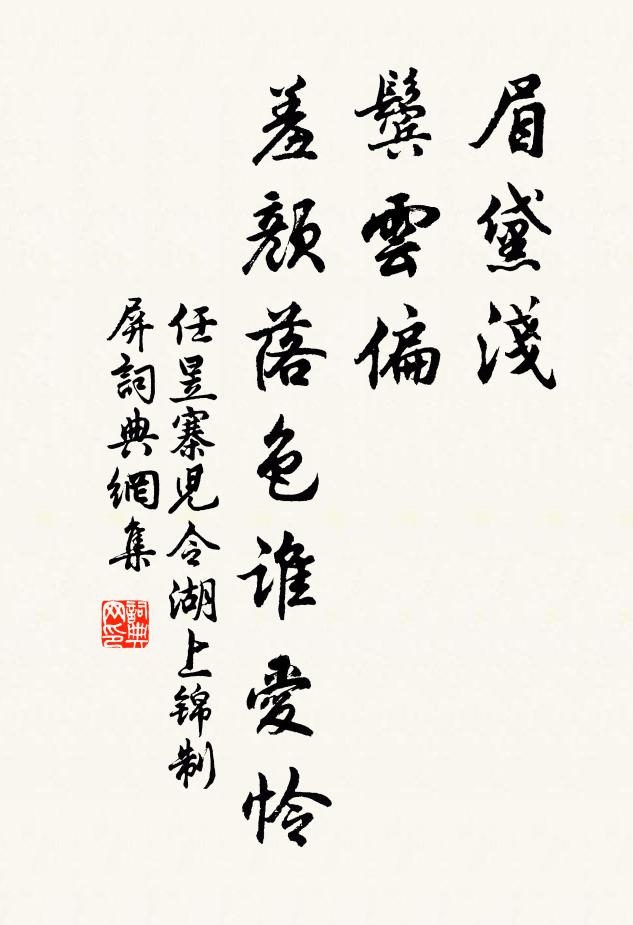 眉黛淺
鬢雲偏
羞顏落色誰愛怜
任昱寨兒令湖上錦制
屏詞典網集
詞典网印